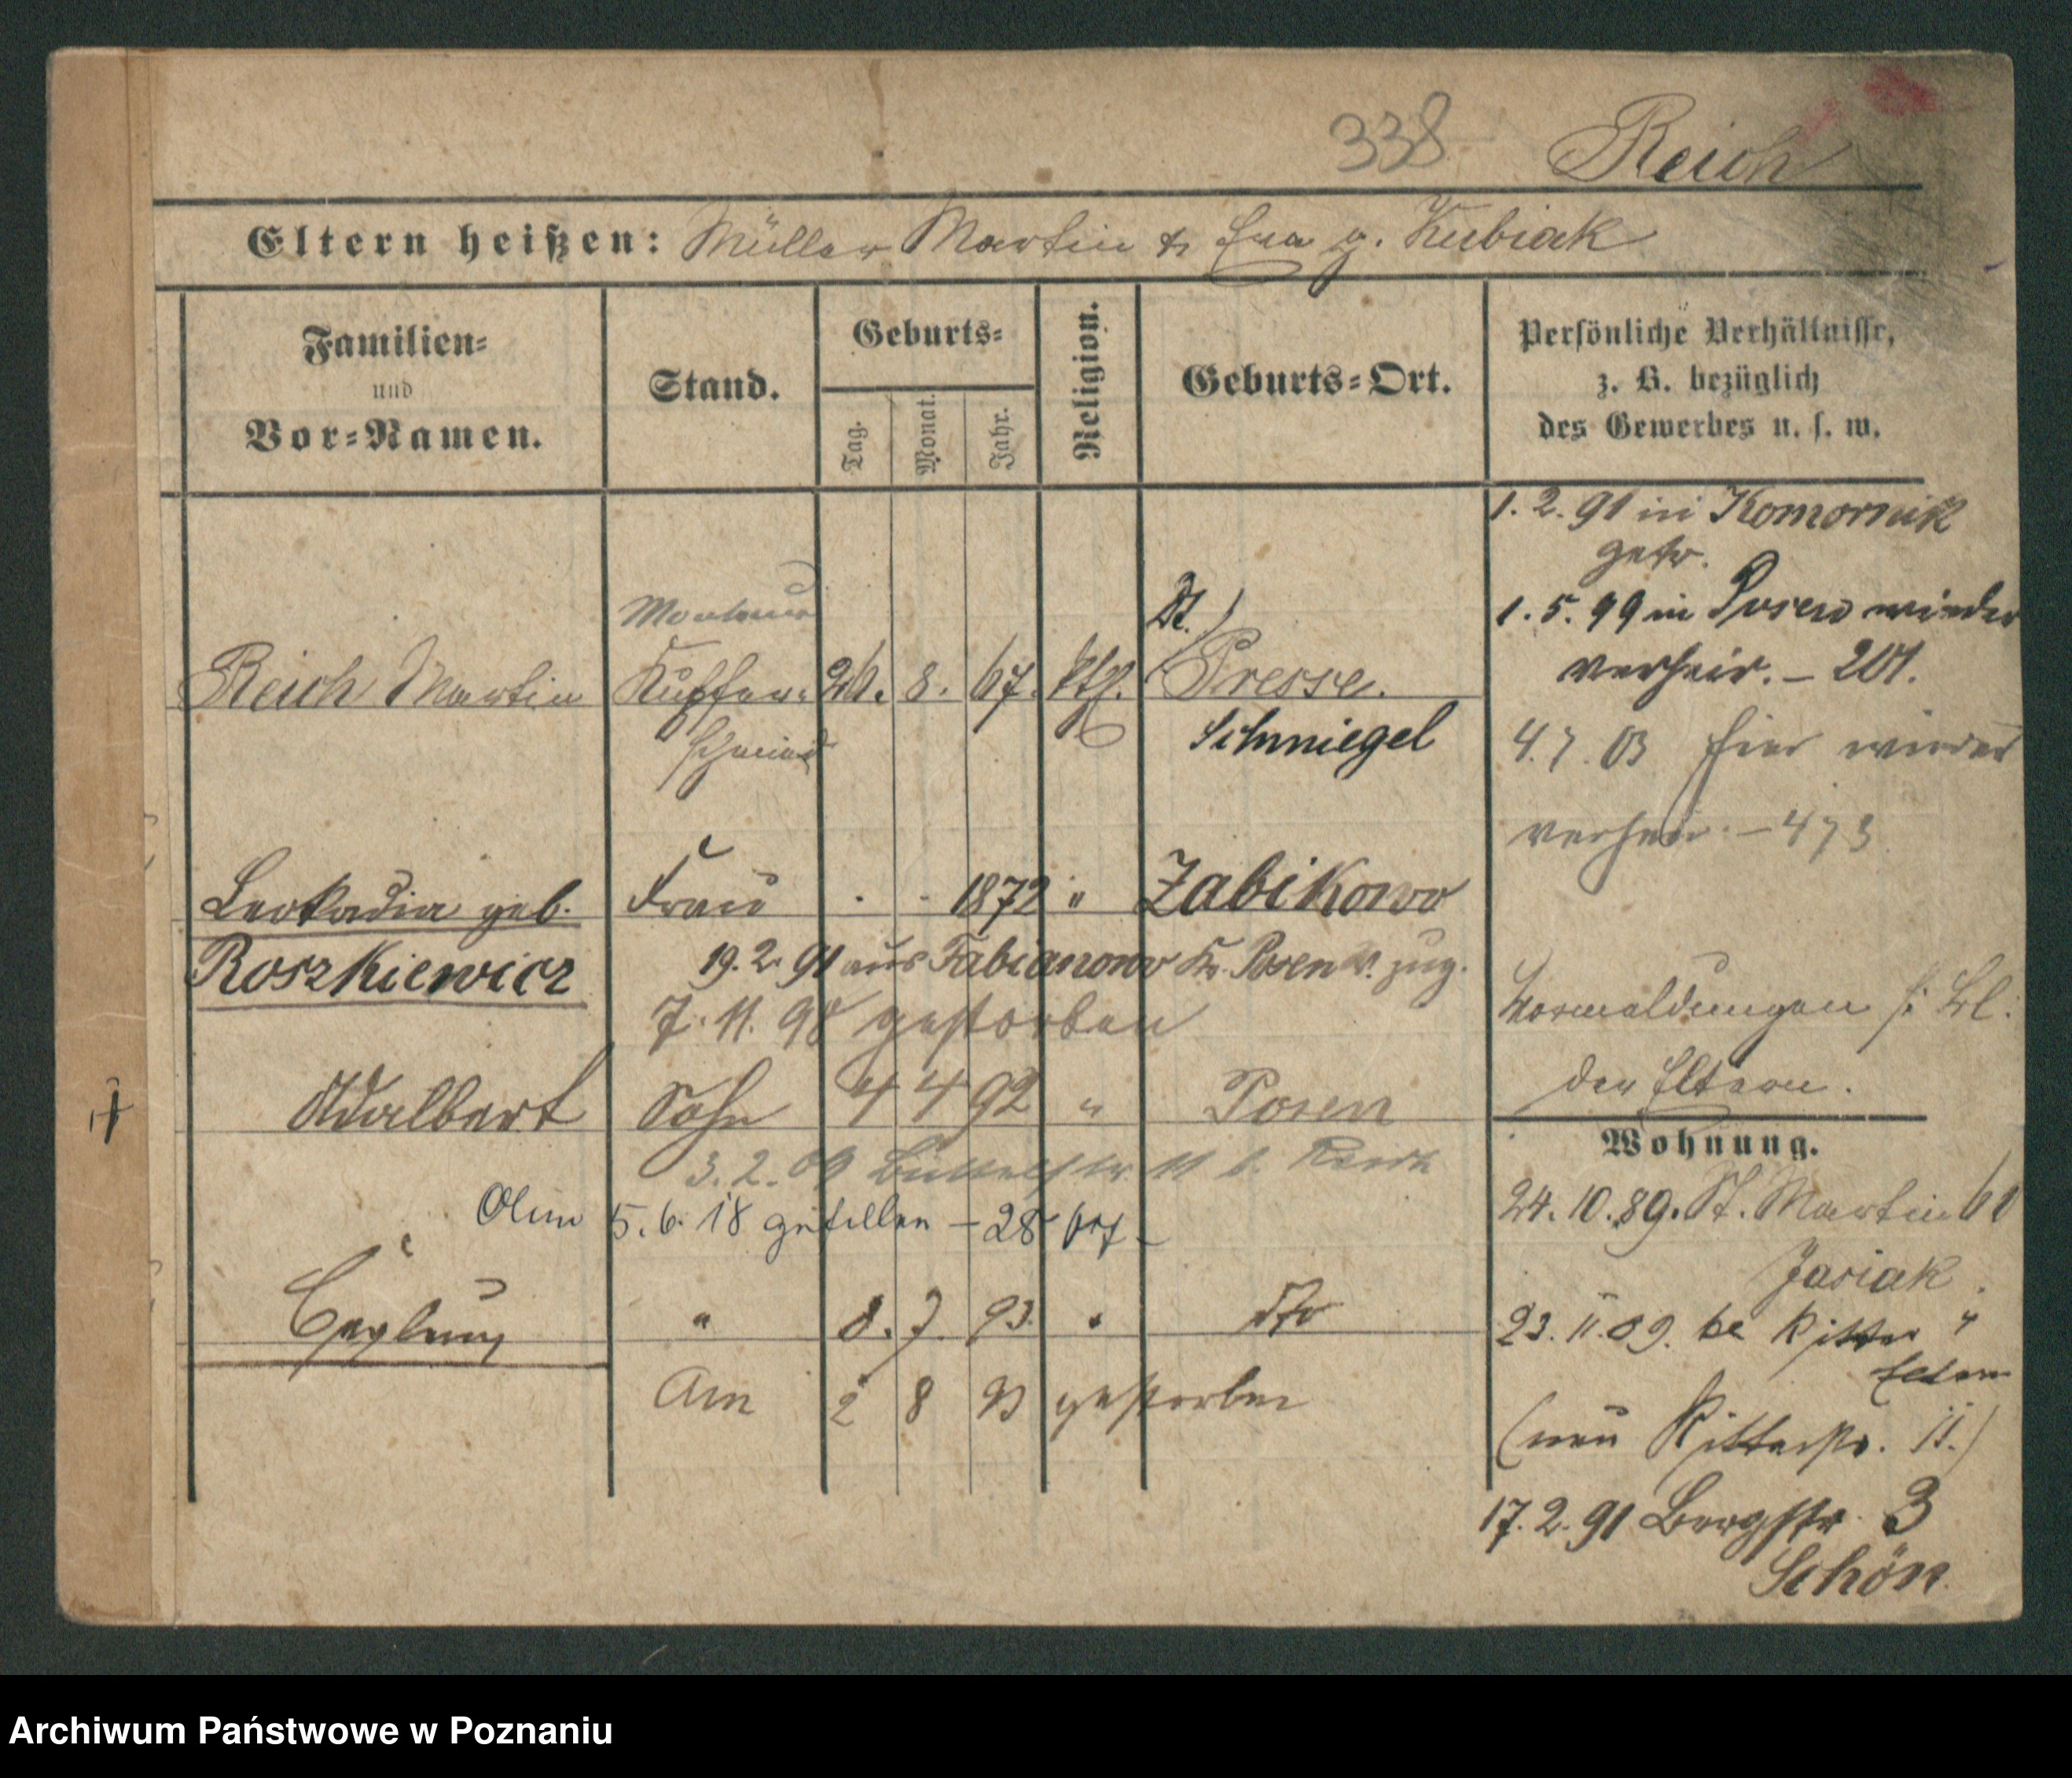 338 Reich
Eltern heißen: Müller Martin & Eva g. Kubiak
Familien-
und
Vor-Namen.
Stand.
Geburts-
Tag.
Monat.
Jahr.
Religion.
Geburts-Ort.
Persönliche Verhältnisse,
z. B. bezüglich
des Gewerbes u. s. w.
1. 2. 91 in Komornik
getr.
1. 5. 99 in Posen wieder
verheir. – 201.
4. 7. 03 hier wieder
verheir. – 473
Monteur
Reich Martin Kupfer- 26. 8. 67. kth. Presse.
schmied Schmiegel
Leokadia geb. Frau 1872 " Zabikowo
Roszkiewicz 19. 2. 91 aus Fabianowo Kr. Posen W. zug.
7. 11. 98 gestorben
Vormeldungen s. Bl.
der Eltern.
Adalbert Sohn 4 4 92 " Posen
3. 2. 09 Büttelstr. 11 b. Reich
5. 6. 18 gefallen – 28
" 8. 7. 93. " dto
Am 2 8 93 gestorben
Wohnung.
24. 10. 89. St. Martin 60
Jasiak.
23. 11. 89. Ritter 4
Eltern
(neu Ritterstr. 11.)
17. 2. 91 Bergstr. 3
Schön
Archiwum Państwowe w Poznaniu